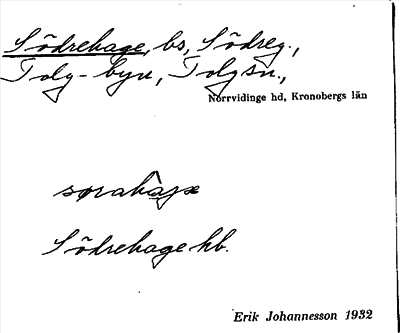 Södrehage, bs, Södreg.,
Tolg-byn, Tolg sn.,
Norrvidinge hd, Kronobergs län
Södrehage hb.
Erik Johannesson 1932